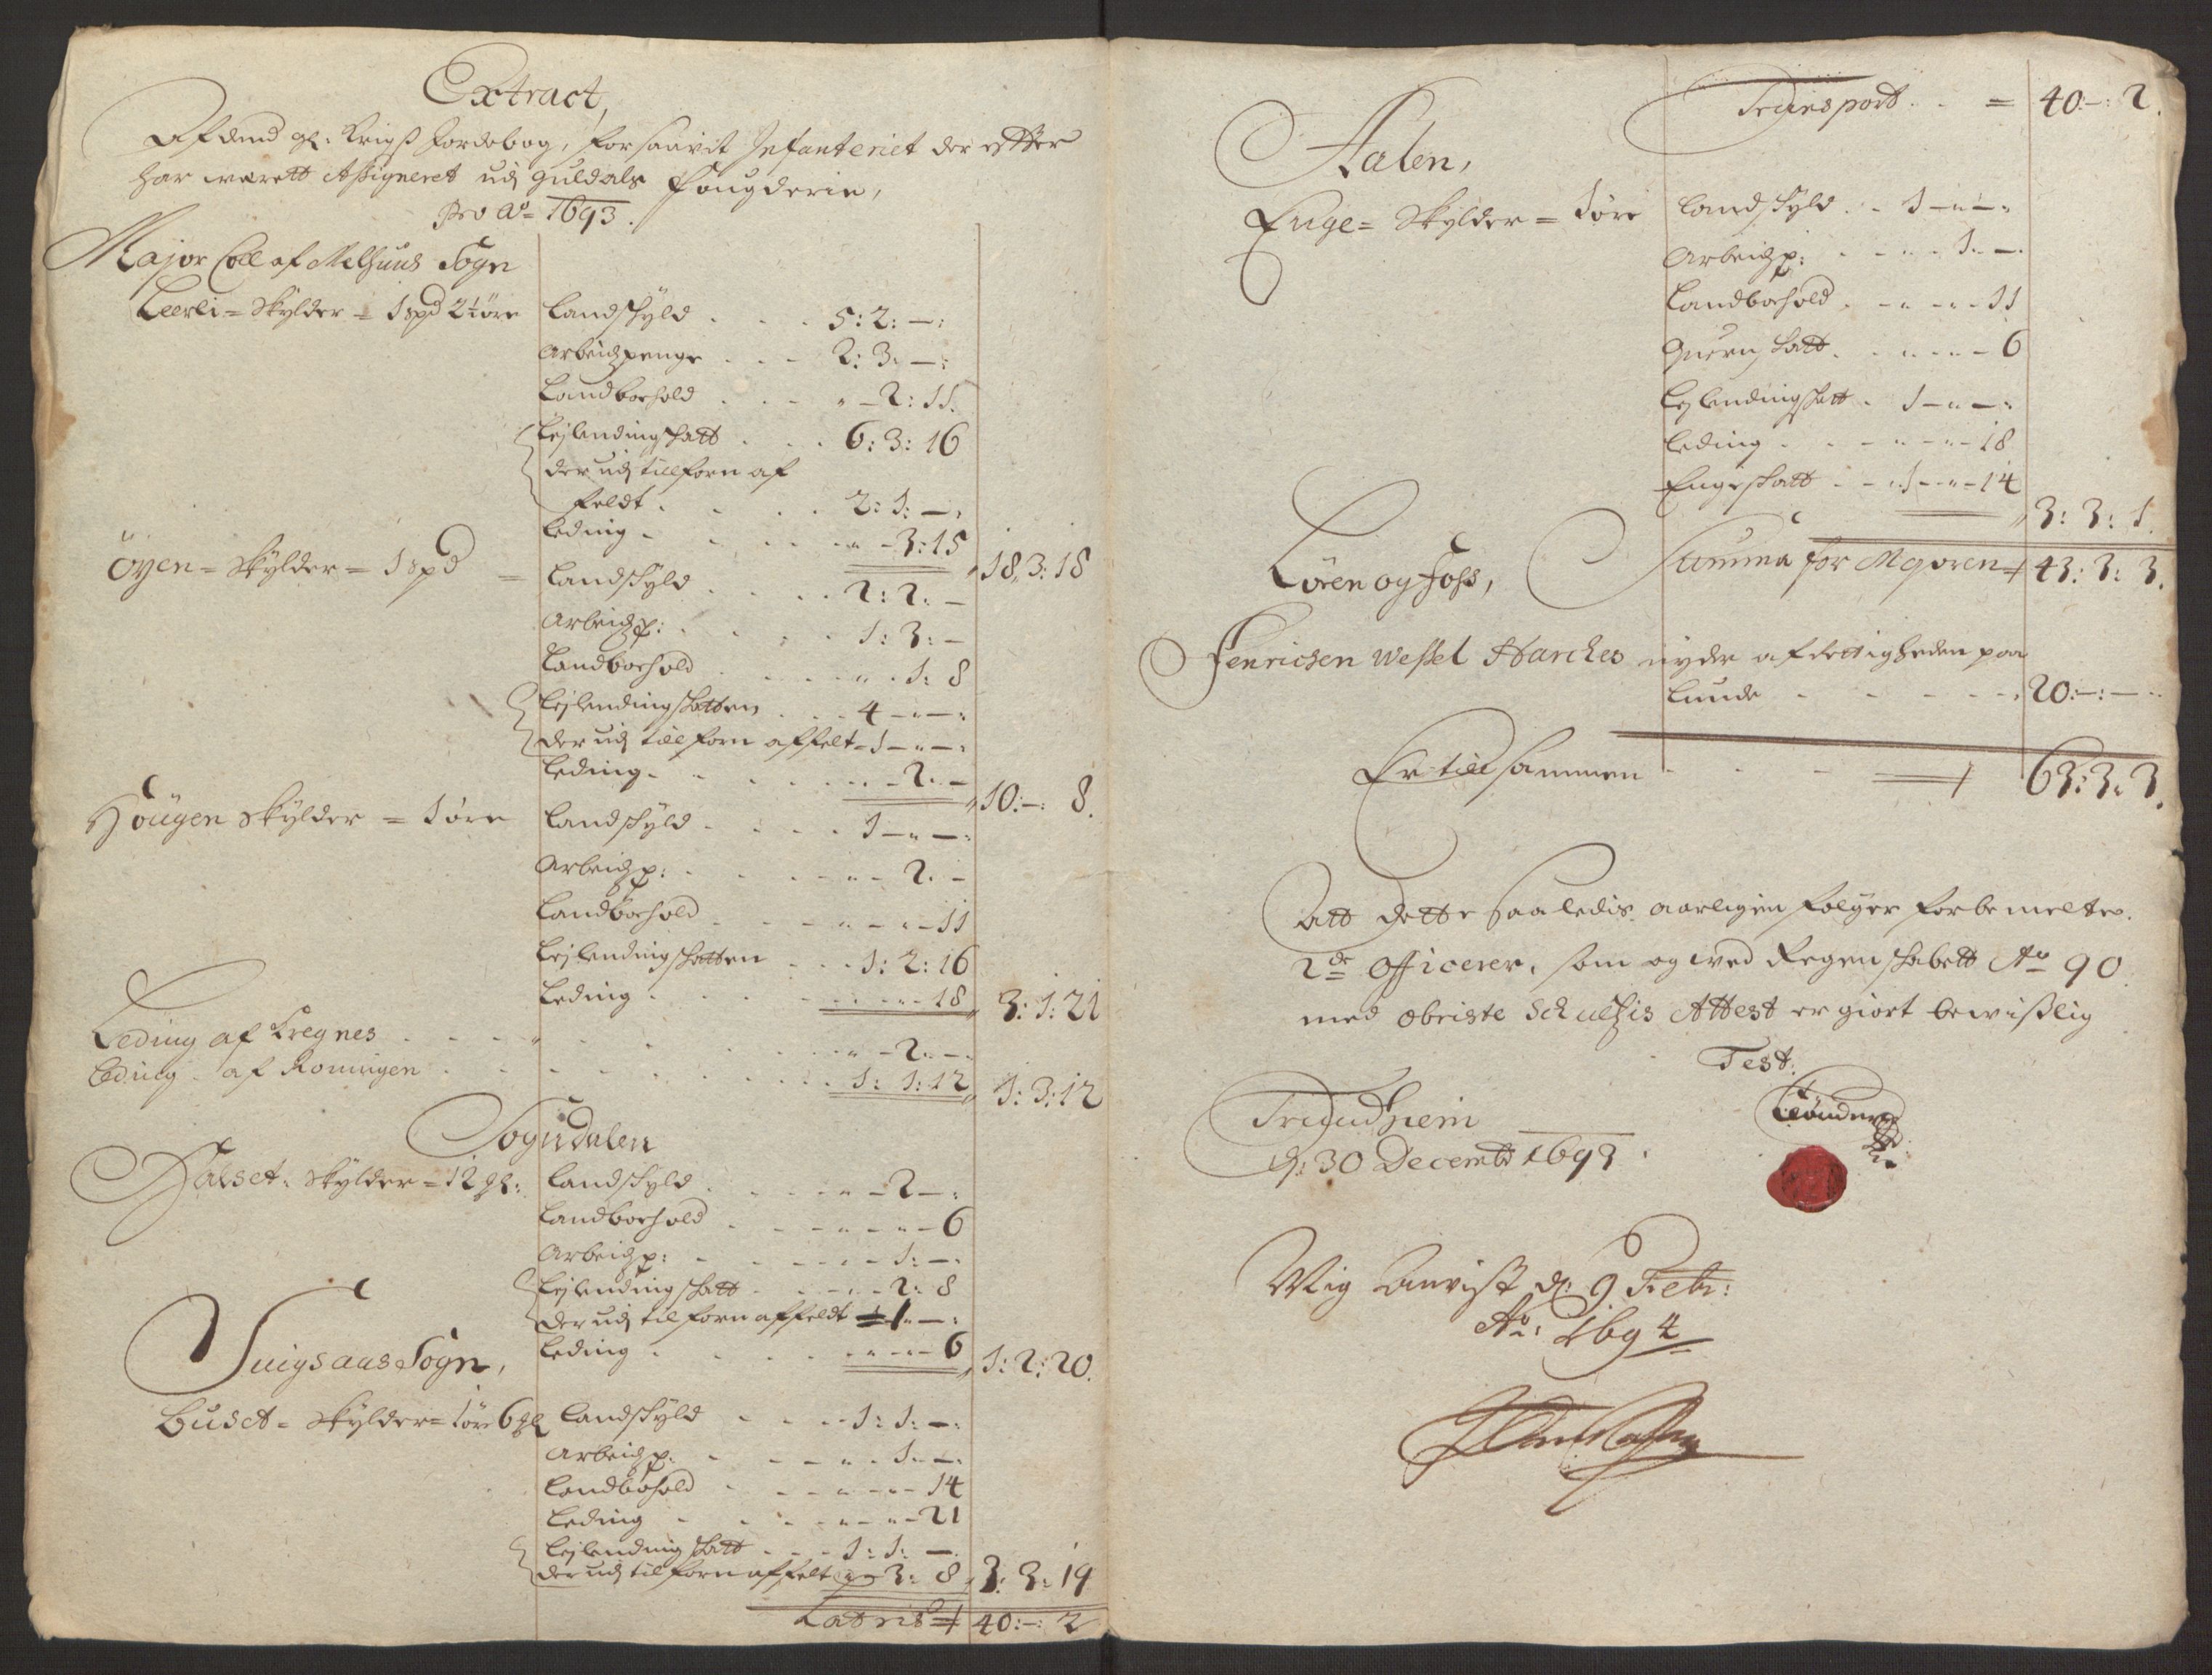 Extract,
Af dend gl: Krigs Jordebog, forsaavit Infanteriet der effter
har werett Assigneret udj Guldals Fougderie,
Pro Ao= 1693.
Major Coll af Melhuus Sogn
Leerli= Skylder = 1 spd 2½ øre Landschyld . . . 5: 2: —:
Arbeidzpenge . . . 2: 3: —:
Landborhold . . . " — 2: 11.
Lejlendingschatt . . . 6: 3: 16
der udj tillforn af
feldt . . . 2: 1: —:
Leding . . . " — 3: 15 18: 3: 18
Öyen= Skylder = 1 spd = Landschyld . . . 2: 2: —
Arbeidzp: . . . 1: 3: —
Landborhold . . . " . 1: 8
Lejlendingschatten . . . 4 — " — :
der udj till forn affelt = 1 — " — :
Leding . . . — 2: — 10: —: 8.
Hougen Skylder = 1 øre Landschyld . . . 1 — " — :
Arbeidzp: . . . " — 2. —
Landborhold . . . " — " — 11
Lejlendingschatten . . . 1: 2: 16
Leding . . . " — 18 3: 1: 21
Leding af Kregnes . . . " — 2: —:
Leding af Romingen . . . 1: 1: 12 1: 3: 12
Sogndalen
Halset: Skylder = 12 gl: Landschyld . . . " — 2 — :
Landborhold . . . " — " — 6
Arbeidzp: . . . — 1: —:
Lejlendingschatt . . . " — 2: 8
der udj til forn affeldt 1 " — :
Leding . . . " — 6 1: 2: 20.
Singsaas Sogn,
Buset= Skylder = 1 øre 6 gl Landschyld . . . 1: 1: —:
Arbeidzp: . . . " . 1: —:
Landbohold . . . " — " — 14
Leding . . . " — " — 21
Lejlending schatt . . . 1: 1: —.
der udj til forn affelt " — 3: 8 3: 3: 19
Latris 40: —: 2
Transport . . = 40: —: 2.
Aalen,
Enge= Skylder = 1 øre Landschyld . . 1 — " — :
Arbeidzp: . . . 1: —.
Landborhold . . . " — 11
Quern Schatt . . . " — 6
Lejlendingschatt . 1 — " — :
Leding . . . " — " — 18
Engeschatt . . 1 — " — 14
3: 3: 1.
Summa for Majoren 43: 3: 3.
Løren og Foss,
Fenrichen Wessel nyder af rettigheden paa
Lunde . . . 20: —: —
Er till sammen . . . 63: 3: 3.
Att dette saaledis aarligen følger forbemelte
2de Officerer, som og wed Regenschabett Ao 90
med Obriste Schultzis Attest er giort bewislig
Test.
Trundhiem
d: 30 Decembr 1693.
Tønder
Mig Anvist d: 9 Febr:
Ao: 1694